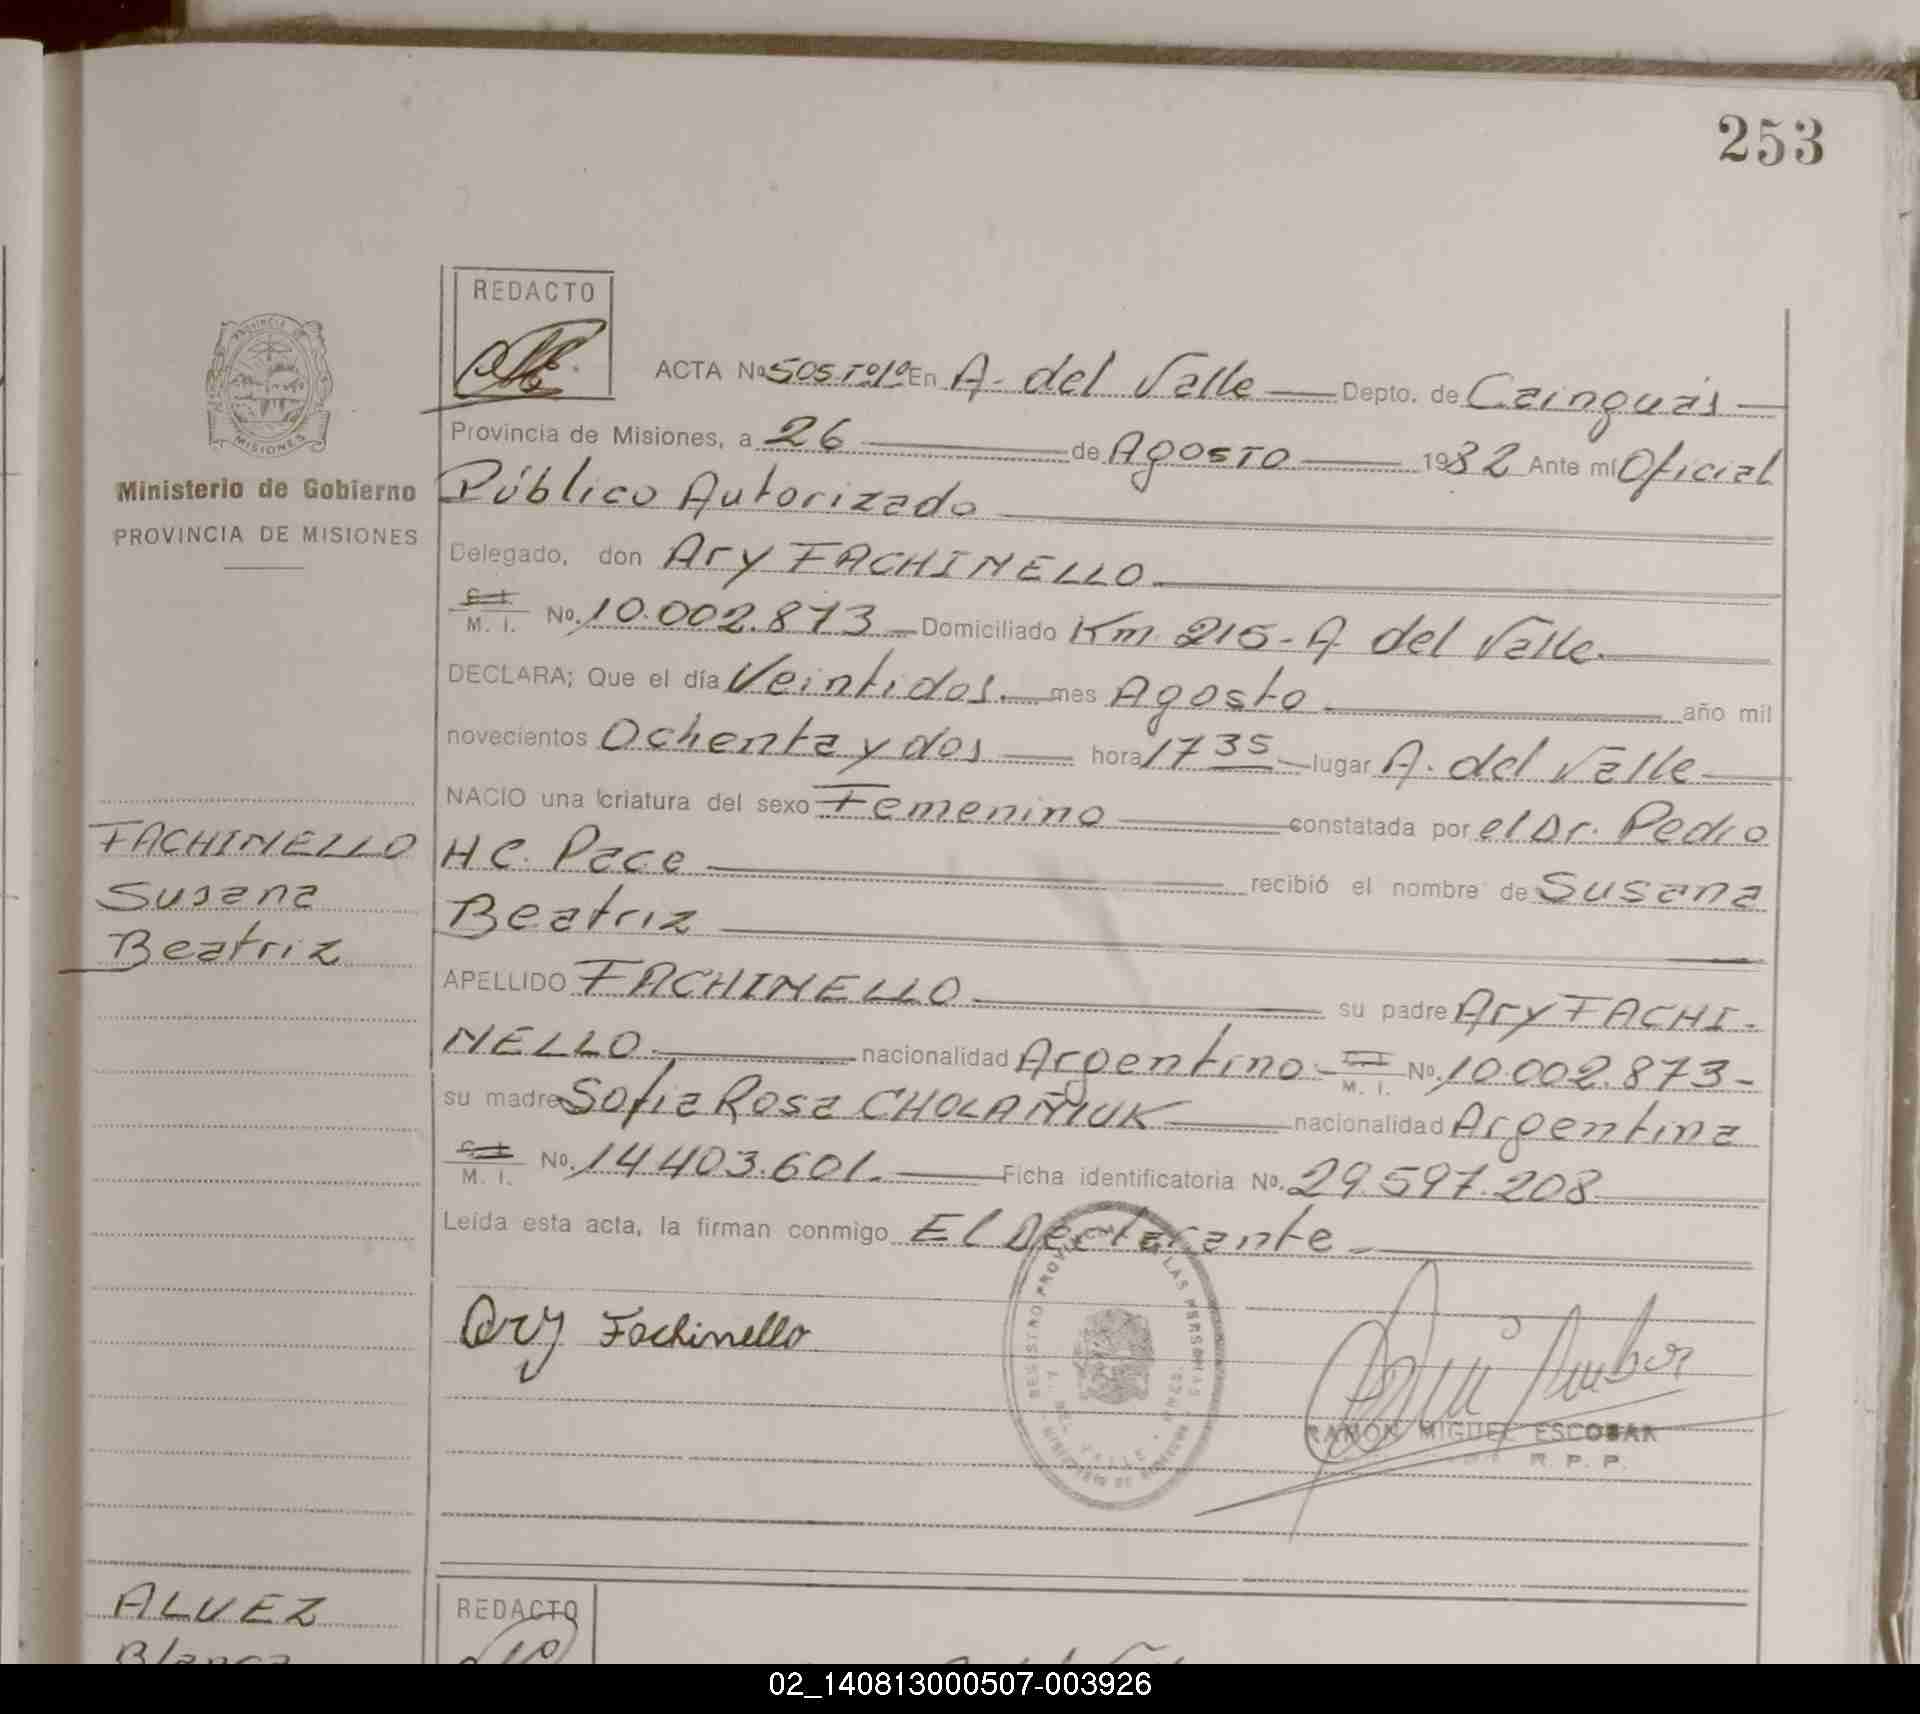 253
REDACTO
ACTA Nº 505 Tº1º En A. del Valle Depto. de Cainguás
Provincia de Misiones, a 26 de Agosto 1982 Ante mí Oficial
Ministerio de Gobierno
Público Autorizado
PROVINCIA DE MISIONES
Delegado, don Ary FACHINELLO
C. I. M. I. Nº. 10.002.873 Domiciliado Km 215 - A del Valle.
DECLARA; Que el día Veintidos. mes Agosto año mil
novecientos Ochenta y dos hora 17 35 lugar A. del Valle
NACIO una criatura del sexo Femenino constatada por el Dr. Pedro
FACHINELLO
H C. Pace recibió el nombre de Susana
Susana
Beatriz
Beatriz
APELLIDO FACHINELLO su padre Ary FACHI-
NELLO nacionalidad Argentino - M. I. Nº. 10.002.873 -
su madre Sofia Rosa CHOLAÑIUK nacionalidad Argentina
C. I. M. I. Nº. 14.403.601. Ficha identificatoria Nº. 29.597.208
Leída esta acta, la firman conmigo El Declarante
Ary Fachinello
RAMON MIGUEL ESCOBAR
R. P. P.
ALVEZ
REDACTO
Blanca
02_140813000507-003926